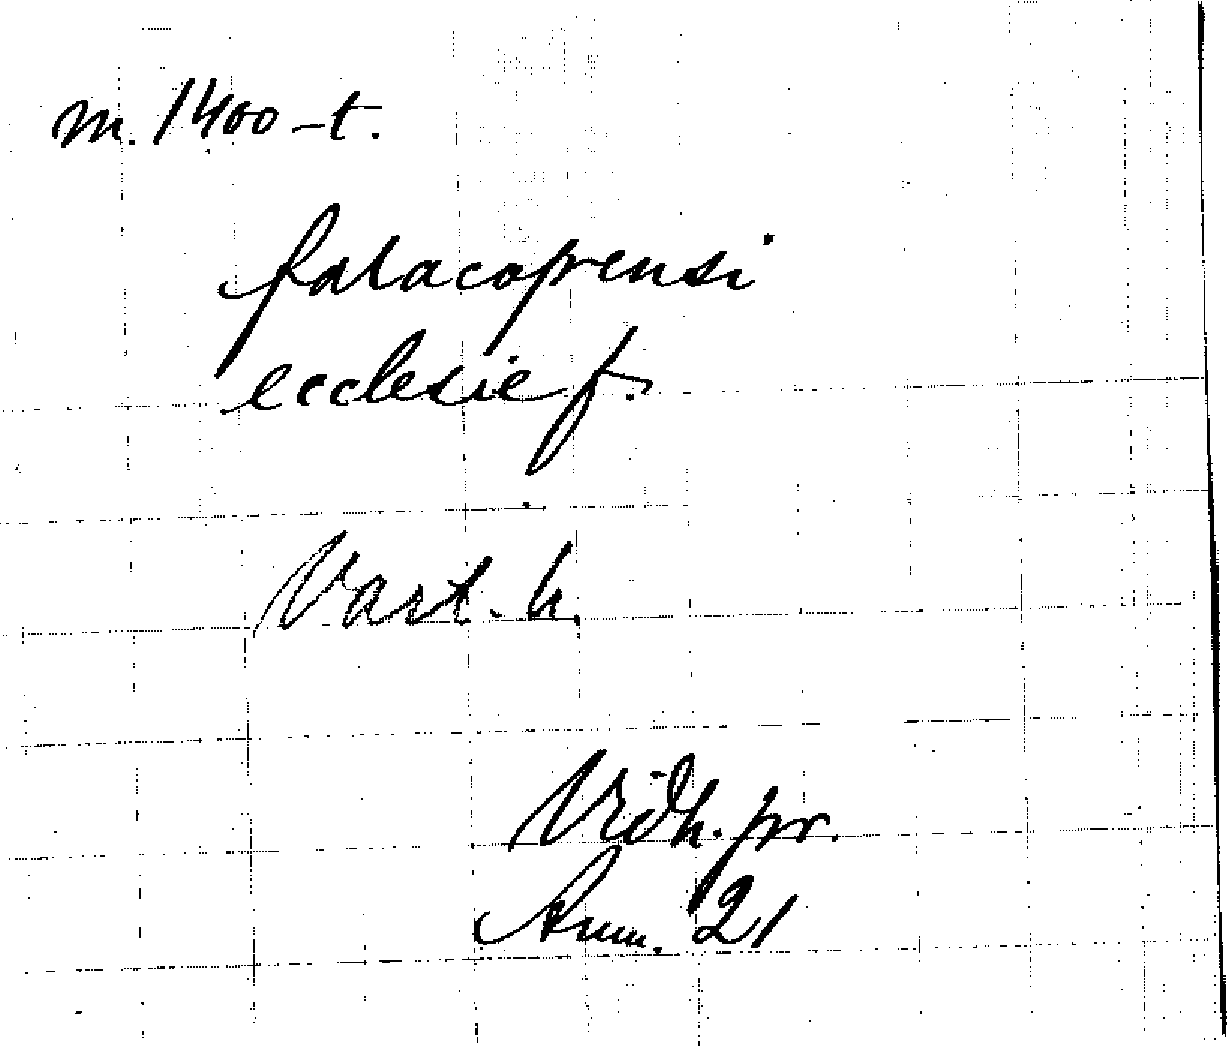 m. 1400-t.
falacopensi
ecclesie f.
Vart. h.
Vidh. pr.
Anm. 21